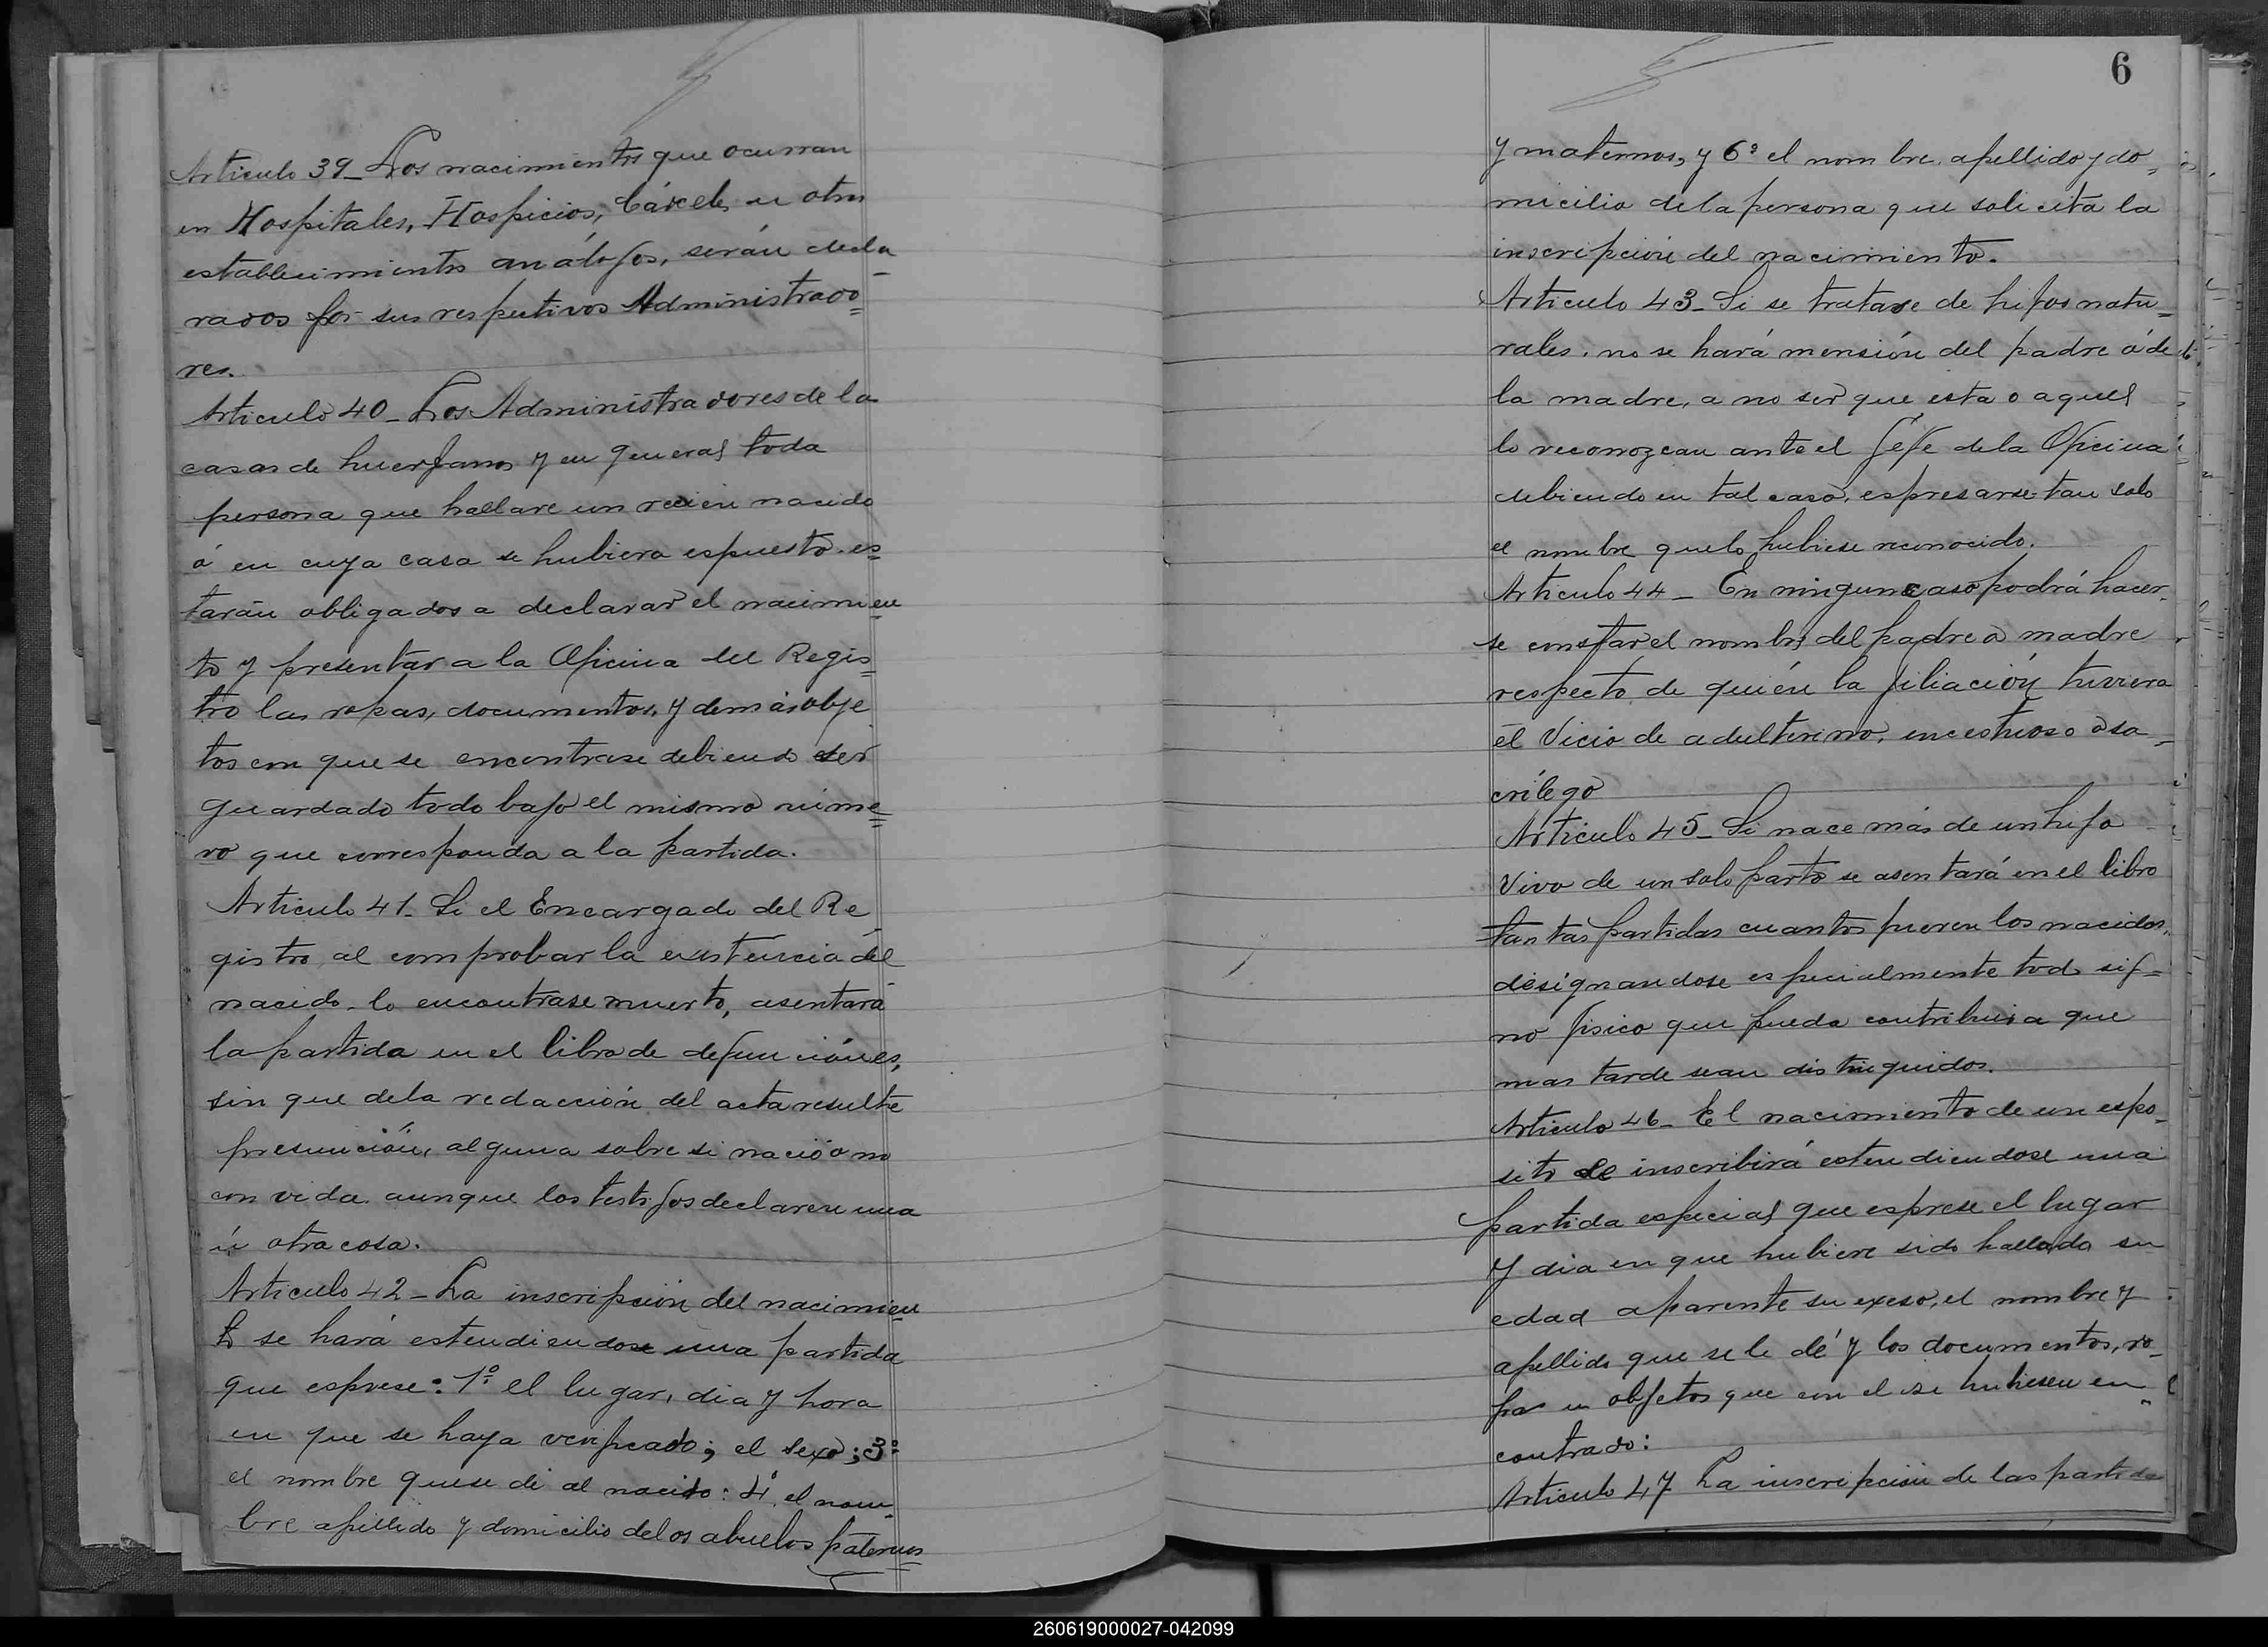 Articulo 39_ Los nacimientos que ocurran
en Hospitales, Hospicios, Cárceles u otros
establecimientos análogos, serán decla_
rados por sus respectivos Administrado=
res.
Articulo 40_ Los Administradores de la
casas de huerfanos y en general toda
persona que hallare un recien nacido
ó en cuya casa se hubiera espuesto es=
tarán obligados a declarar el nacimien=
to y presentar a la Oficina del Regis=
tro las ropas, documentos, y demás obje
tos con que se encontrase debiendo ser
guardado todo bajo el mismo núme=
ro que corresponda a la partida.
Articulo 41_ Si el Encargado del Re_
gistro, al comprobar la existencia del
nacido lo encontrase muerto, asentará
la partida en el libro de defunciónes,
sin que de la redacción del acta resulte
presunción, alguna sobre si nació o no
con vida aunque los testigos declaren una
ú otra cosa.
Articulo 42_ La inscripción del nacimien=
to se hará estendiendose una partida
que esprese: 1º el lugar, dia y hora
en que se haya verificado; el sexo; 3º
el nombre que se dé al nacido: 4º el nom_
bre apellido y domicilio de los abuelos paternos
6
y maternos, y 6º el nombre, apellido y do=
micilio de la persona que solicita la
inscripción del nacimiento.
Articulo 43_ Si se tratare de hijos natu=
rales, no se hará mensión del padre ó de
la madre, a no ser que esta o aquel
lo reconozcan ante el Jefe de la Oficina
debiendo en tal caso, espresarse tan solo
el nombre que lo hubiese reconocido.
Articulo 44_ En ningun caso podrá hacer_
se constar el nombre del padre o madre
respecto de quién la filiación tuviera
el vicio de adulterino, incestuoso o sa_
crílego
Articulo 45_ Si nace más de un hijo
vivo de un solo parto se asentará en el libro
tantas partidas cuantos fueren los nacidos,
designandose especialmente todo sig=
no fisico que pueda contribuir a que
mas tarde sean distinguidos.
Articulo 46_ El nacimiento de un espo_
sito se inscribirá estendiendose una
partida especial que esprese el lugar
y dia en que hubiere sido hallado su
edad aparente su exeso, el nombre y
apellido que se le dé y los documentos, ro_
pas u objetos que con el se hubiesen en=
contrado:
Articulo 47 La inscripción de las partidas
260619000027-042099